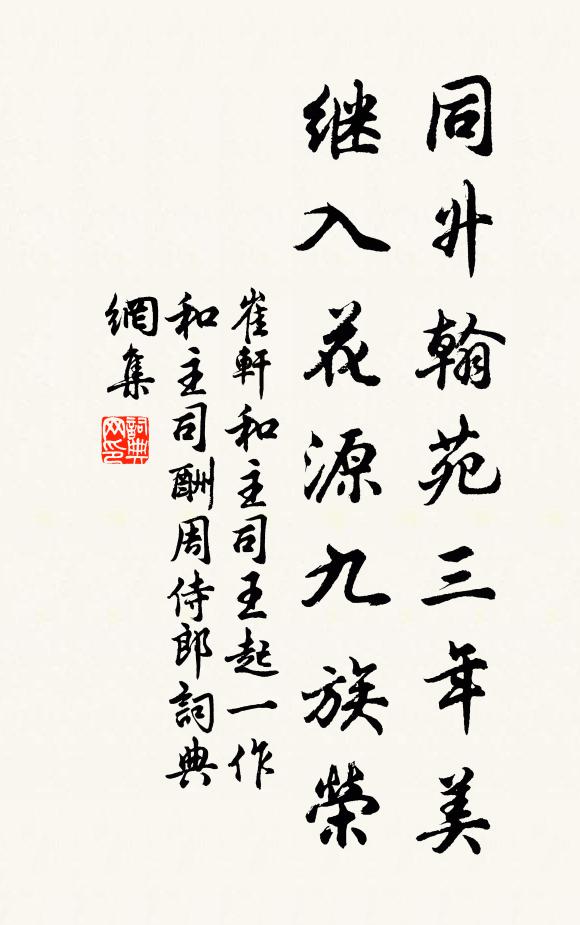 同升翰苑三年美
继入花源九族榮
崔軒和主司王起一作
和主司酬周侍郎詞典
網集
詞典網印